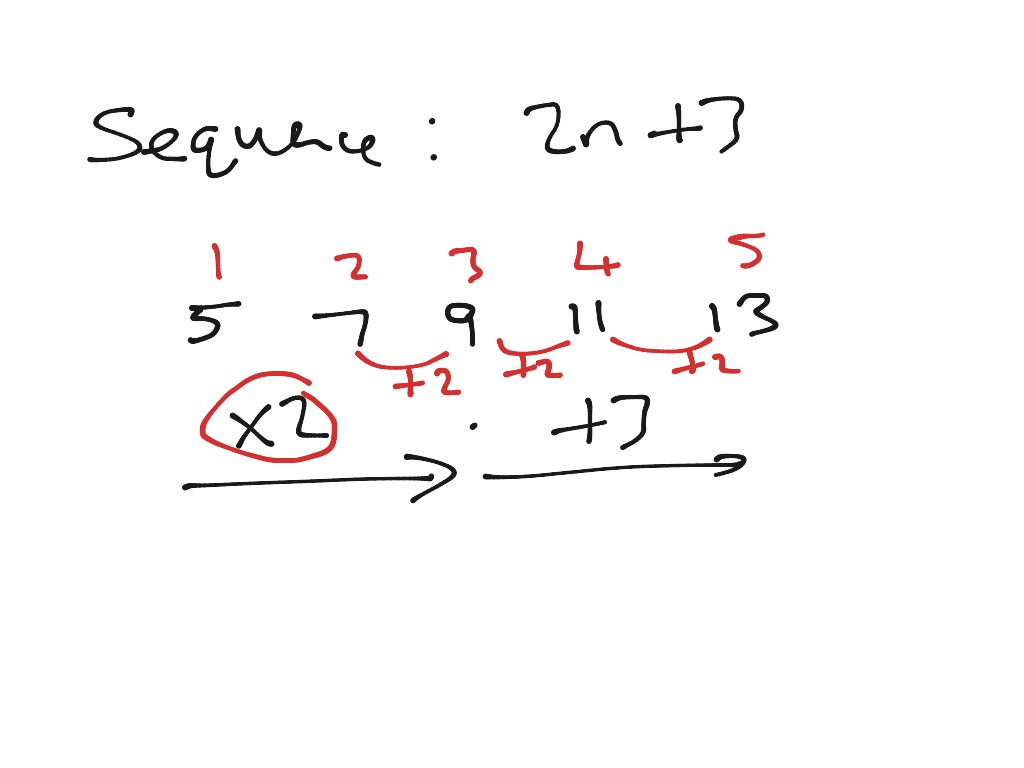 Sequence : 2n+3
1 2 3 4 5
5 7 9 11 13
+2 +2 +2
×2 . +3